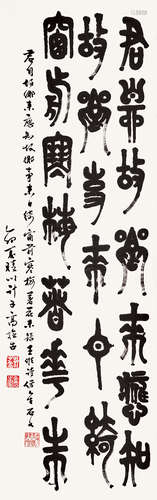 君自故鄉來應知
故鄉事來日綺
窗前寒梅著花未
君自故鄉來應知故鄉事來日綺窗前寒梅著花未 王維詩
乙卯夏